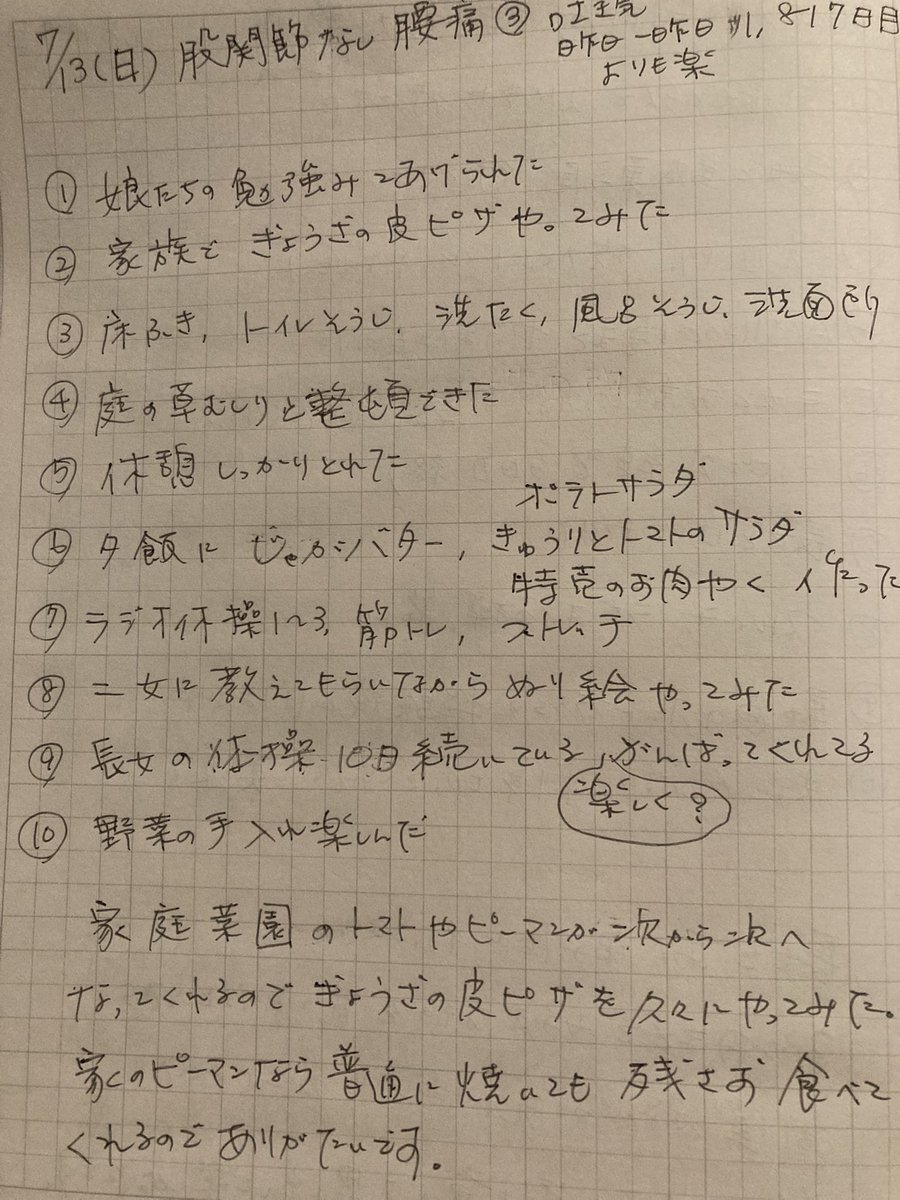 7/13(日) 股関節なし 腰痛③ 吐き気
昨日一昨日 #1, 8-17日目
よりも楽
① 娘たちの勉強みてあげられた
② 家族で ぎょうざの皮ピザやってみた
③ 床ふき, トイレそうじ, 洗たく, 風呂そうじ, 洗面所
④ 庭の草むしりと整頓できた
⑤ 休憩しっかりとれた
ポテトサラダ
⑥ 夕飯に じゃがバター, きゅうりとトマトのサラダ
特売のお肉やく 作った
⑦ ラジオ体操1~3, 筋トレ, ストレッチ
⑧ 二女に教えてもらいながら ぬり絵やってみた
⑨ 長女の体操 10日続いている, がんばってくれてる
楽しく?
⑩ 野菜の手入れ楽しんだ
家庭菜園のトマトやピーマンが次から次へ
なってくれるので ぎょうざの皮ピザを久々にやってみた。
家のピーマンなら普通に焼いても 残さず食べて
くれるので ありがたいです。